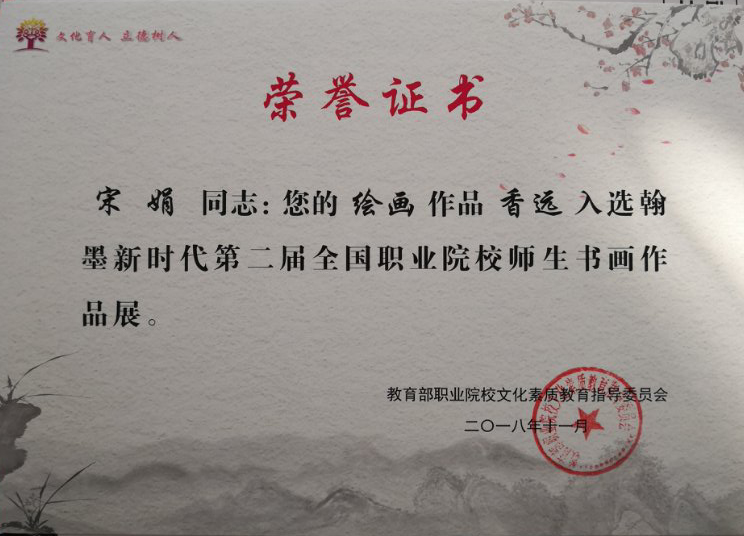 文化育人 立德树人
荣誉证书
宋娟 同志：您的 绘画 作品 香远 入选翰
墨新时代第二届全国职业院校师生书画作
品展。
教育部职业院校文化素质教育指导委员会
二〇一八年十一月